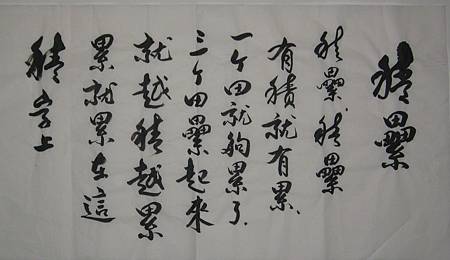 積纍
積纍、積纍
有積就有累、
一个田就夠累了、
三个田纍起來
就越積越累
累就累在這
積字上